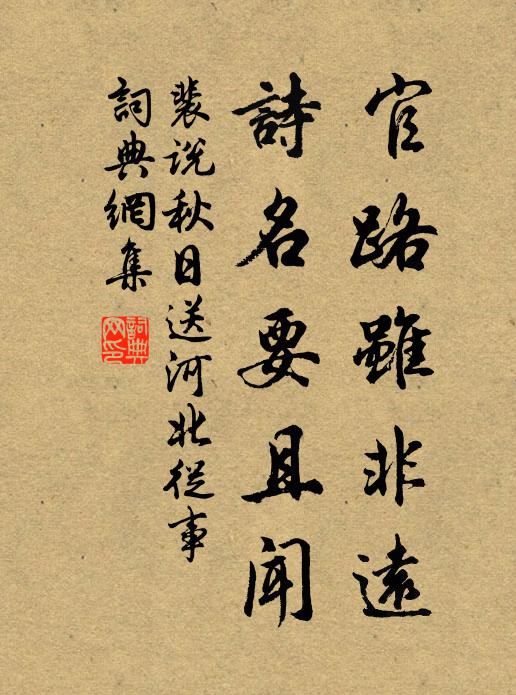 官路雖非遠
詩名要且聞
裴說秋日送河北從事
詞典網集
詞典
网印